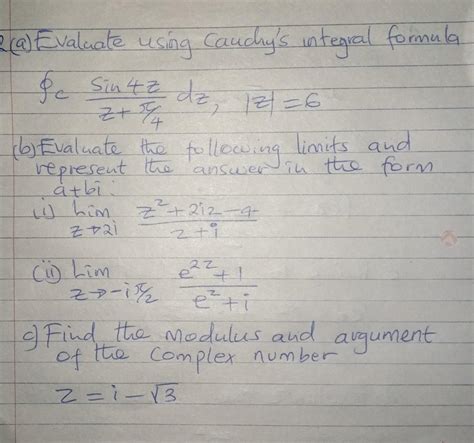 2(a) Evaluate using Cauchy's integral formula
∮c Sin 4z / z + π/4 dz, |z| = 6
(b) Evaluate the following limits and
represent the answer in the form
a+bi:
(i) Lim z→2i z² + 2iz - 4 / z + i
(ii) Lim z→-iπ/2 e^2z + 1 / e^z + i
c) Find the modulus and argument
of the complex number
z = i - √3